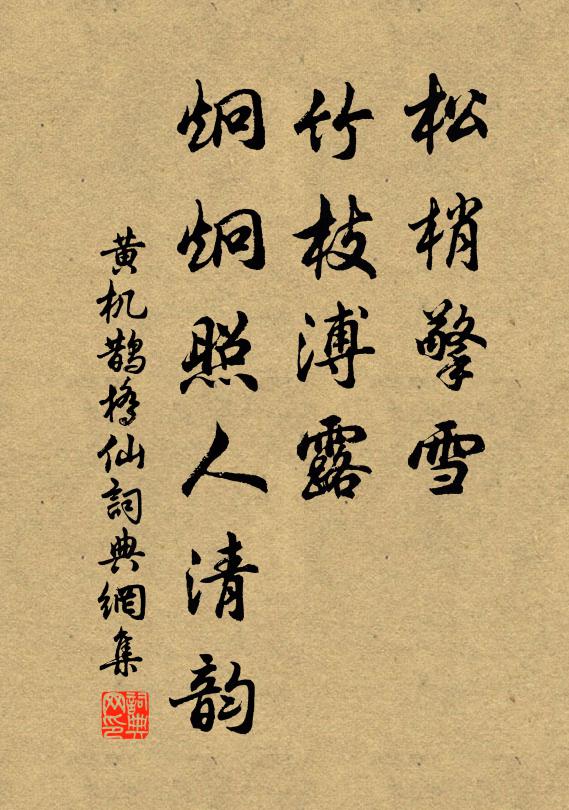 松梢擎雪
竹枝溥露
炯炯照人清韵
黄机鹊橋仙詞典網集
詞典网印